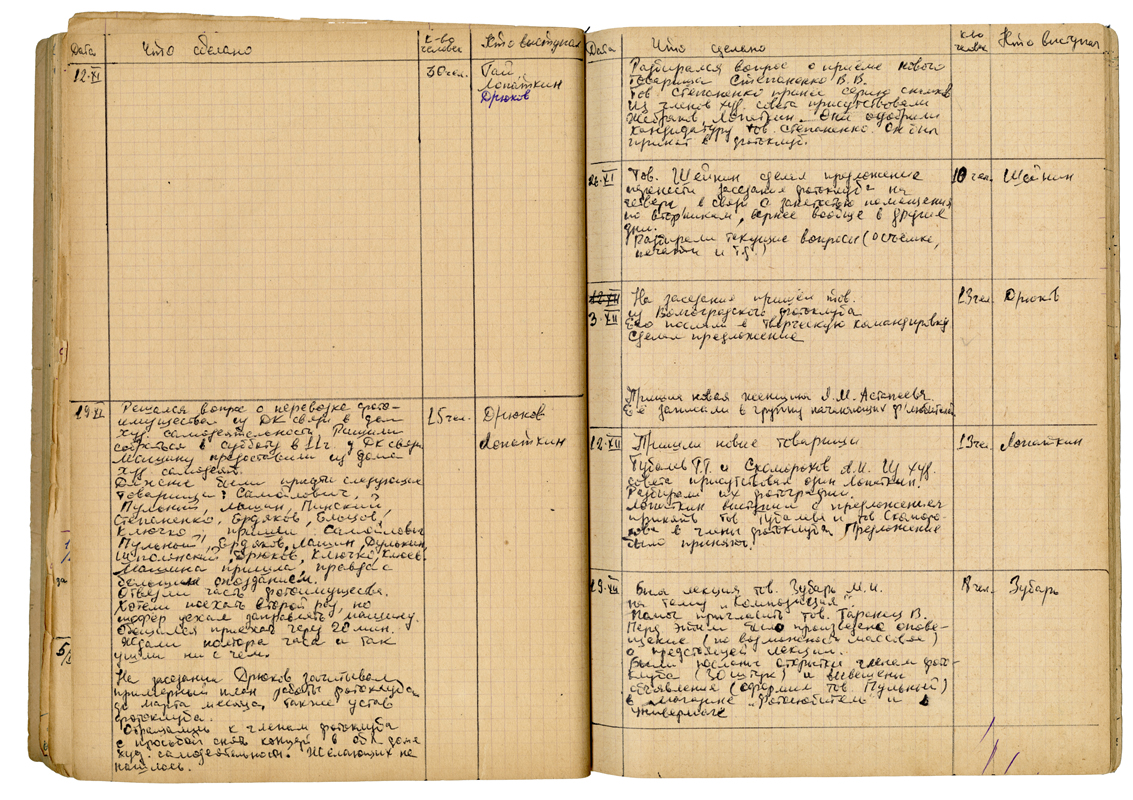 Дата Что сделано к-во человек Кто выступал
12.XI 30 чел. Гай,
Лопаткин
Дрюков
19.XI Решался вопрос о перевозке фото-
имущества из ДК связи в дом
худ. самодеятельности. Решили
собраться в субботу в 11 ч. у ДК связи
Машину предоставили из дома
худ. самодеят.
Должны были придти следующие
товарищи: Самойлович,
Пульный, Машин, Пинский,
Степаненко, Бурдяков,
Ключко, пришли Самойлович
Пульный, Бурдяков, Машин, Дулькин
Шполянский, Дрюков, Ключко
Машина пришла, правда с
большим опозданием.
Отвезли часть фотоимущества.
Хотели поехать второй раз, но
шофер уехал заправлять машину.
Обещался приехать через 20 мин.
Ждали полтора часа и так
ушли ни с чем.
На заседании Дрюков зачитывал
примерный план работы фотоклуба
до марта месяца, также устав
фотоклуба.
Обращались к членам фотоклуба
с просьбой снять концерт в обл. доме
худ. самодеятельности. Желающих не
нашлось.
15 чел. Дрюков
Лопаткин
Дата Что сделано к-во человек Кто выступал
Разбирался вопрос о приеме нового
товарища Степаненко В.В.
Тов. Степаненко принес серию снимков
Из членов худ. совета присутствовали
Жебраков, Лопаткин. Они одобрили
кандидатуру тов. Степаненко. Он был
принят в фотоклуб.
26.XI Тов. Шейнин сделал предложение
перенести заседания фотоклуба на
четверг, в связи с занятостью помещения
по вторникам, вернее вообще в другие
дни.
Разбирали текущие вопросы (о съемке,
печати и т.д.)
10 чел. Шейнин
12.XII
3.XII На заседание пришёл тов.
из Волгоградского фотоклуба
Его послали в творческую командировку
Сделал предложение
13 чел. Дрюков
Пришла новая женщина Л.М. Астапчева
Её записали в группу начинающих ф/любителей
12.XII Пришли новые товарищи
Губаль Г.Г. и Скоморохов А.И. Из худ.
совета присутствовал один Лопаткин.
Разбирали их фотографии.
Лопаткин выступил с предложением
принять тов. Губаль и тов. Скоморо-
хова в члены фотоклуба. Предложение
было принято.
13 чел. Лопаткин
19.XII Была лекция тов. Зубарь М.И.
на тему „Композиция“
Помог пригласить тов. Таранец В.
Перед этим было произведено опове-
щение (по возможности массовое)
о предстоящей лекции.
Были посланы открытки членам фото-
клуба (30 штук) и вывешены
объявления (оформил тов. Пульный)
в магазине „Фотолюбитель“ и в
универмаге
чел. Зубарь